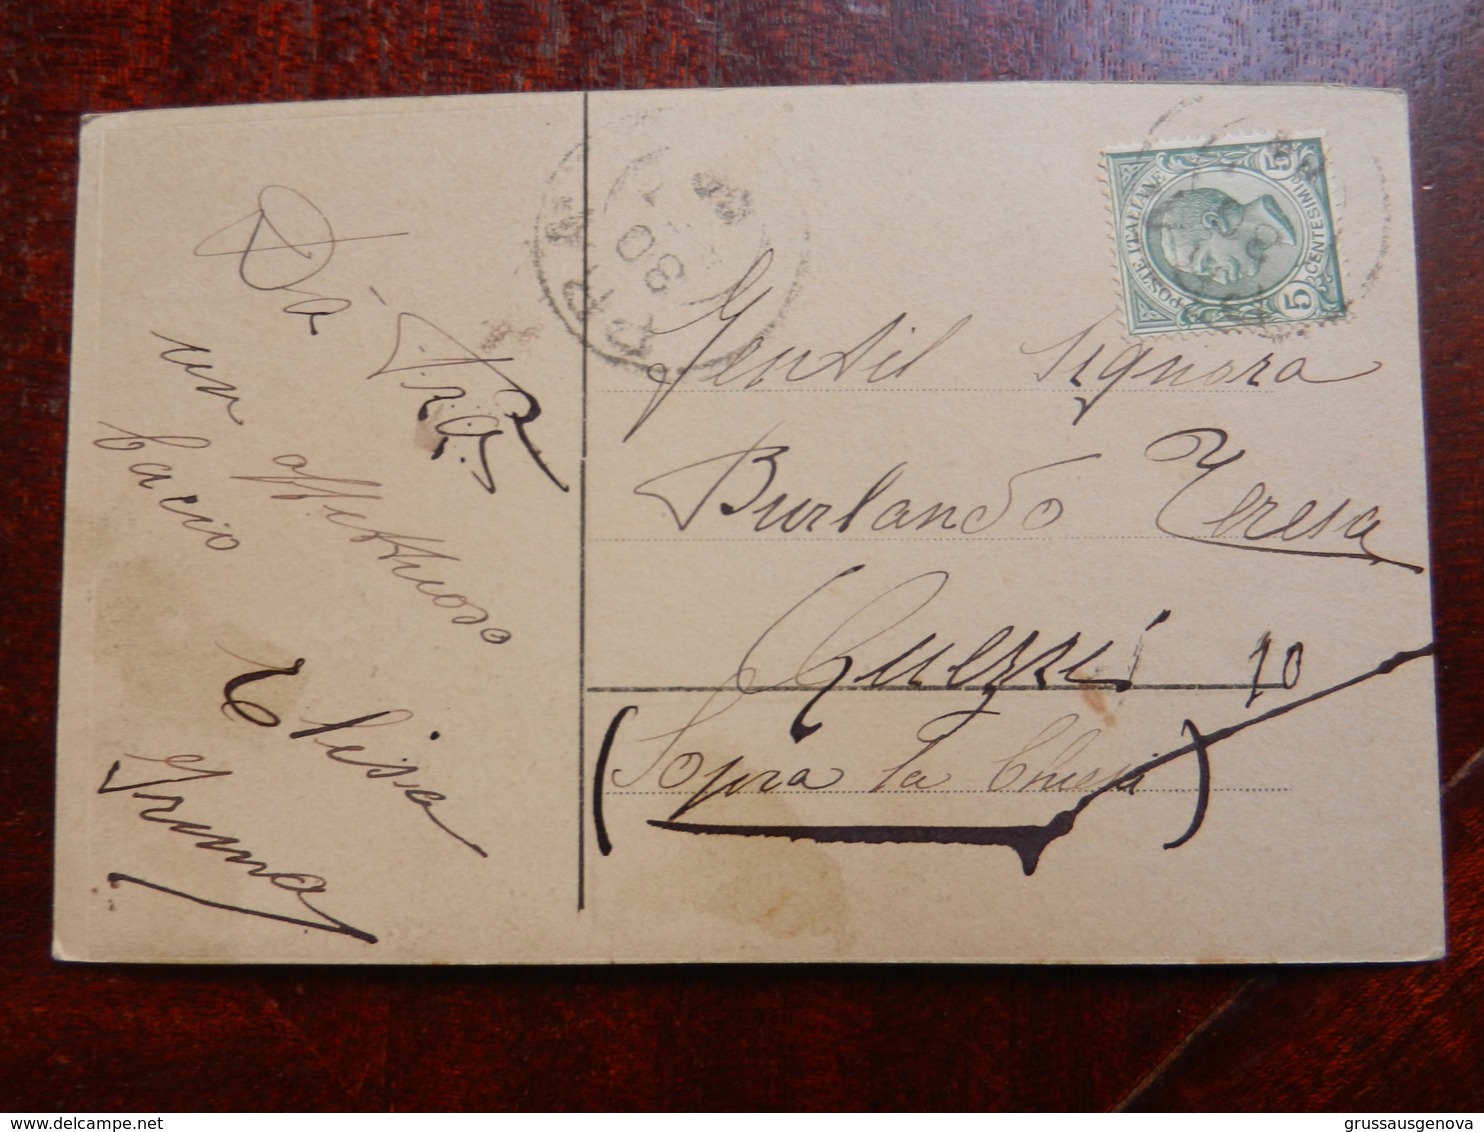 Da
un affettuoso
bacio
Elisa
Irma
POSTE ITALIANE
5 CENTESIMI 5
30
Gentil Signora
Burlando Teresa
Quezzi 10
(Sopra la Chiesa)
grussausgenova